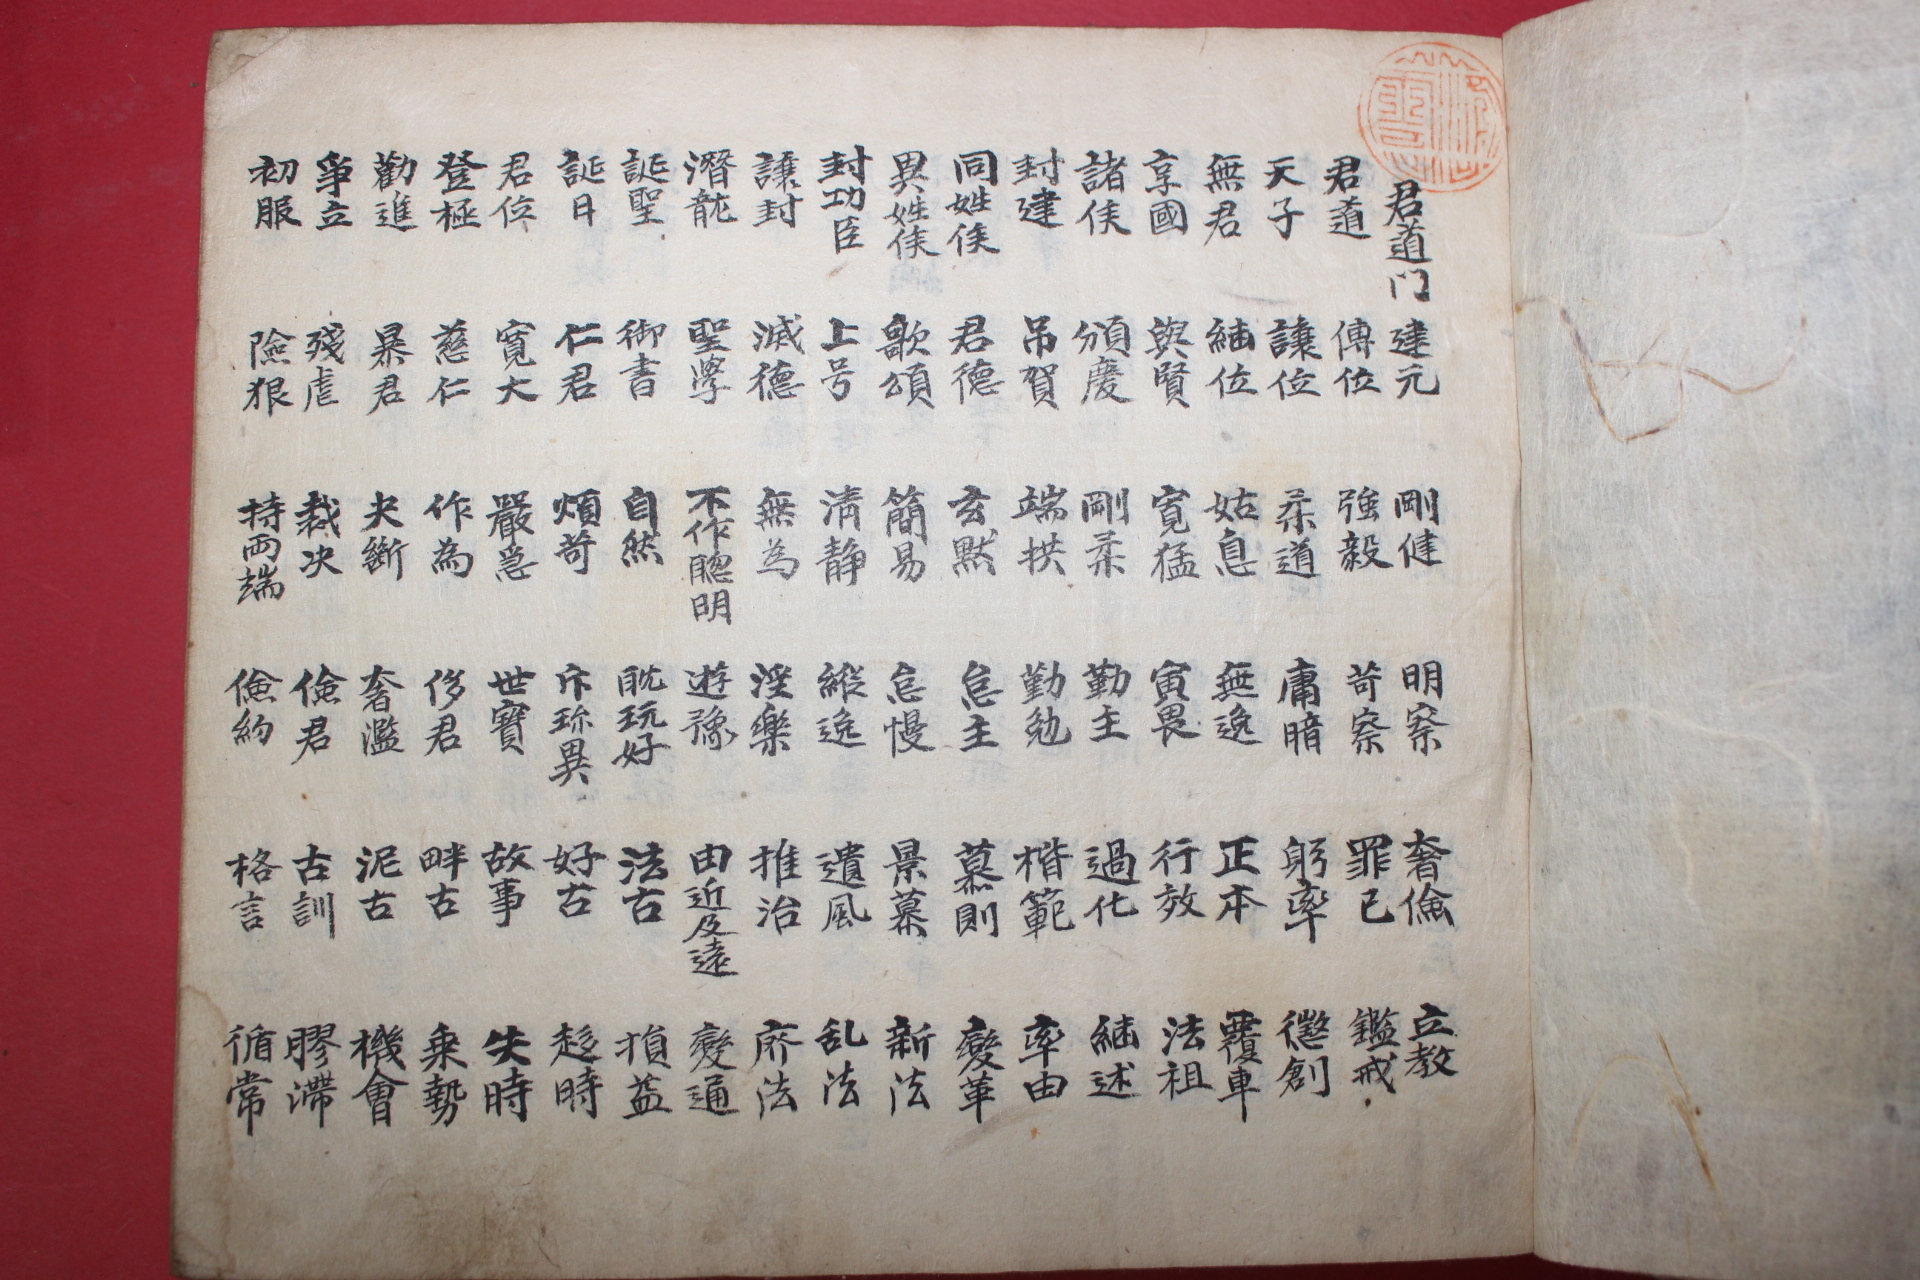 君道門 君道 天子 無君 享國 諸侯 封建 同姓侯 異姓侯 封功臣 讓封 潛龍 誕聖 誕日 君位 登極 勸進 爭立 初服
建元 傳位 讓位 継位 與賢 頒慶 吊賀 君德 歌頌 上号 滅德 聖學 御書 仁君 寬大 慈仁 暴君 殘虐 險狠
剛健 強毅 柔道 姑息 寬猛 剛柔 端拱 玄默 簡易 清静 無為 不作聰明 自然 煩苛 嚴急 作為 夬斷 裁决 持両端
明察 苛察 庸暗 無逸 寅畏 勤主 勤勉 怠主 怠慢 縱逸 淫樂 遊豫 耽玩好 斥珎異 世寶 侈君 奢濫 儉君 儉約
奢儉 罪己 躬率 正本 行效 過化 楷範 慕則 景慕 遺風 推治 由近及遠 法古 好古 故事 畔古 泥古 古訓 格言
立教 鑑戒 懲創 覆車 法祖 継述 率由 變革 新法 乱法 法 變通 損益 趍時 失時 乗勢 機會 膠滯 循常